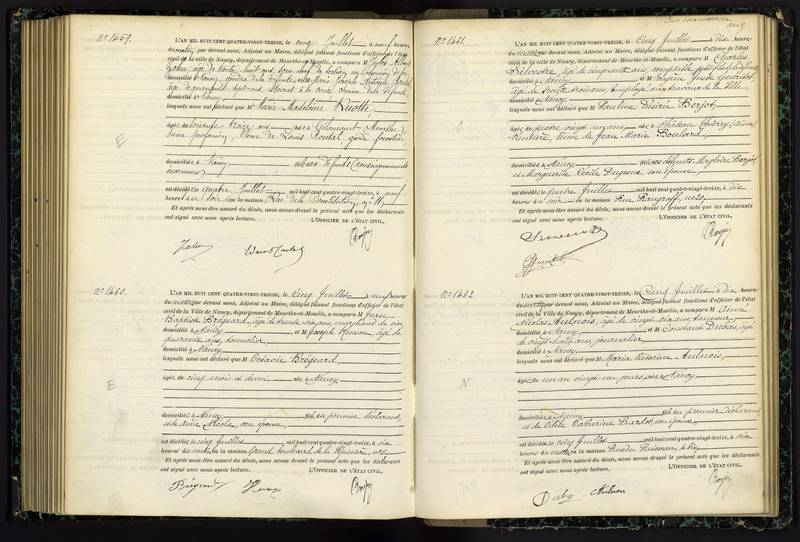 N° 1459.
L'AN MIL HUIT CENT QUATRE-VINGT-TREIZE, le cinq Juillet à neuf heures
du matin, par devant nous, Adjoint au Maire, délégué faisant fonctions d'officier de l'état
civil de la ville de Nancy, département de Meurthe-et-Moselle, a comparu M Jules
âgé de trente
domicilié à Nancy,
âgé de quarante sept ans,
domicilié à Nancy
lesquels nous ont déclaré que M Marie Madeleine Ruotte
âgée de soixante treize ans née à (Meurthe),
sans profession, Veuve de Louis Contal, garde forestier
domiciliée à Nancy fille des défunts (renseignements
inconnus)
est décédée le quatre Juillet mil huit cent quatre-vingt-treize, à neuf
heures du soir en la maison Rue de la Constitution, n° 11
Et après nous être assuré du décès, nous avons dressé le présent acte que les déclarants
ont signé avec nous après lecture. L'OFFICIER DE L'ÉTAT CIVIL,
E
N° 1460.
L'AN MIL HUIT CENT QUATRE-VINGT-TREIZE, le cinq Juillet à neuf heures
du matin par devant nous, Adjoint au Maire, délégué faisant fonctions d'officier de l'état
civil de la Ville de Nancy, département de Meurthe-et-Moselle, a comparu M Jean
Baptiste Brégeard, âgé de trente six ans, marchand de vin
domicilié à Nancy et M Joseph Husson, âgé de
quarante ans, tonnelier
domicilié à Nancy
lesquels nous ont déclaré que M Octavie Brégeard
âgée de cinq mois et demi née à Nancy
E
domiciliée à Nancy fille du premier déclarant,
et de Anne Nicolas, son épouse
est décédée le cinq Juillet mil huit cent quatre-vingt-treize, à six
heures du matin en la maison Grand boulevard de la Pépinière, n° 6
Et après nous être assuré du décès, nous avons dressé le présent acte que les déclarants
ont signé avec nous après lecture. L'OFFICIER DE L'ÉTAT CIVIL,
Brégeard
N° 1461.
L'AN MIL HUIT CENT QUATRE-VINGT-TREIZE, le cinq Juillet à dix
heures du matin par devant nous, Adjoint au Maire, délégué faisant fonctions d'officier de l'état
civil de la ville de Nancy, département de Meurthe-et-Moselle, a comparu M Charles
Silvestre, âgé de cinquante ans, comptable, petit-fils de la défunte
domicilié à Nancy et M Eugène
âgé de trente trois ans, employé aux travaux de la Ville
domicilié à Nancy,
lesquels nous ont déclaré que M Pauline Désirée Berjot
âgée de quatre vingt un ans née à Château Thierry (Aisne)
Rentière, Veuve de Jean Marie Boulard,
domiciliée à Nancy fille des défunts Magloire Berjot
et Marguerite Cécile Duguene, son épouse,
est décédée le quatre Juillet mil huit cent quatre-vingt-treize, à dix
heures du soir en la maison Rue Raugraff, n° 20
Et après nous être assuré du décès, nous avons dressé le présent acte que les déclarants
ont signé avec nous après lecture. L'OFFICIER DE L'ÉTAT CIVIL,
N° 1462.
L'AN MIL HUIT CENT QUATRE-VINGT-TREIZE, le cinq Juillet à dix
heures du matin par devant nous, Adjoint au Maire, délégué faisant fonctions d'officier de l'état
civil de la Ville de Nancy, département de Meurthe-et-Moselle, a comparu M Aimé
Nicolas Aulnois, âgé de vingt six ans, tanneur,
domicilié à Nancy et M Constant Dubas, âgé
de vingt huit ans, journalier
domicilié à Nancy,
lesquels nous ont déclaré que M Maria Victorine Aulnois,
âgée de un an vingt un jours, née à Nancy
N
domiciliée à Nancy fille du premier déclarant
et de Odile Catherine Bardot, son épouse,
est décédée le cinq Juillet mil huit cent quatre-vingt-treize, à six
heures du matin en la maison Rue du Ruisseau,
Et après nous être assuré du décès, nous avons dressé le présent acte que les déclarants
ont signé avec nous après lecture. L'OFFICIER DE L'ÉTAT CIVIL,
Aulnois